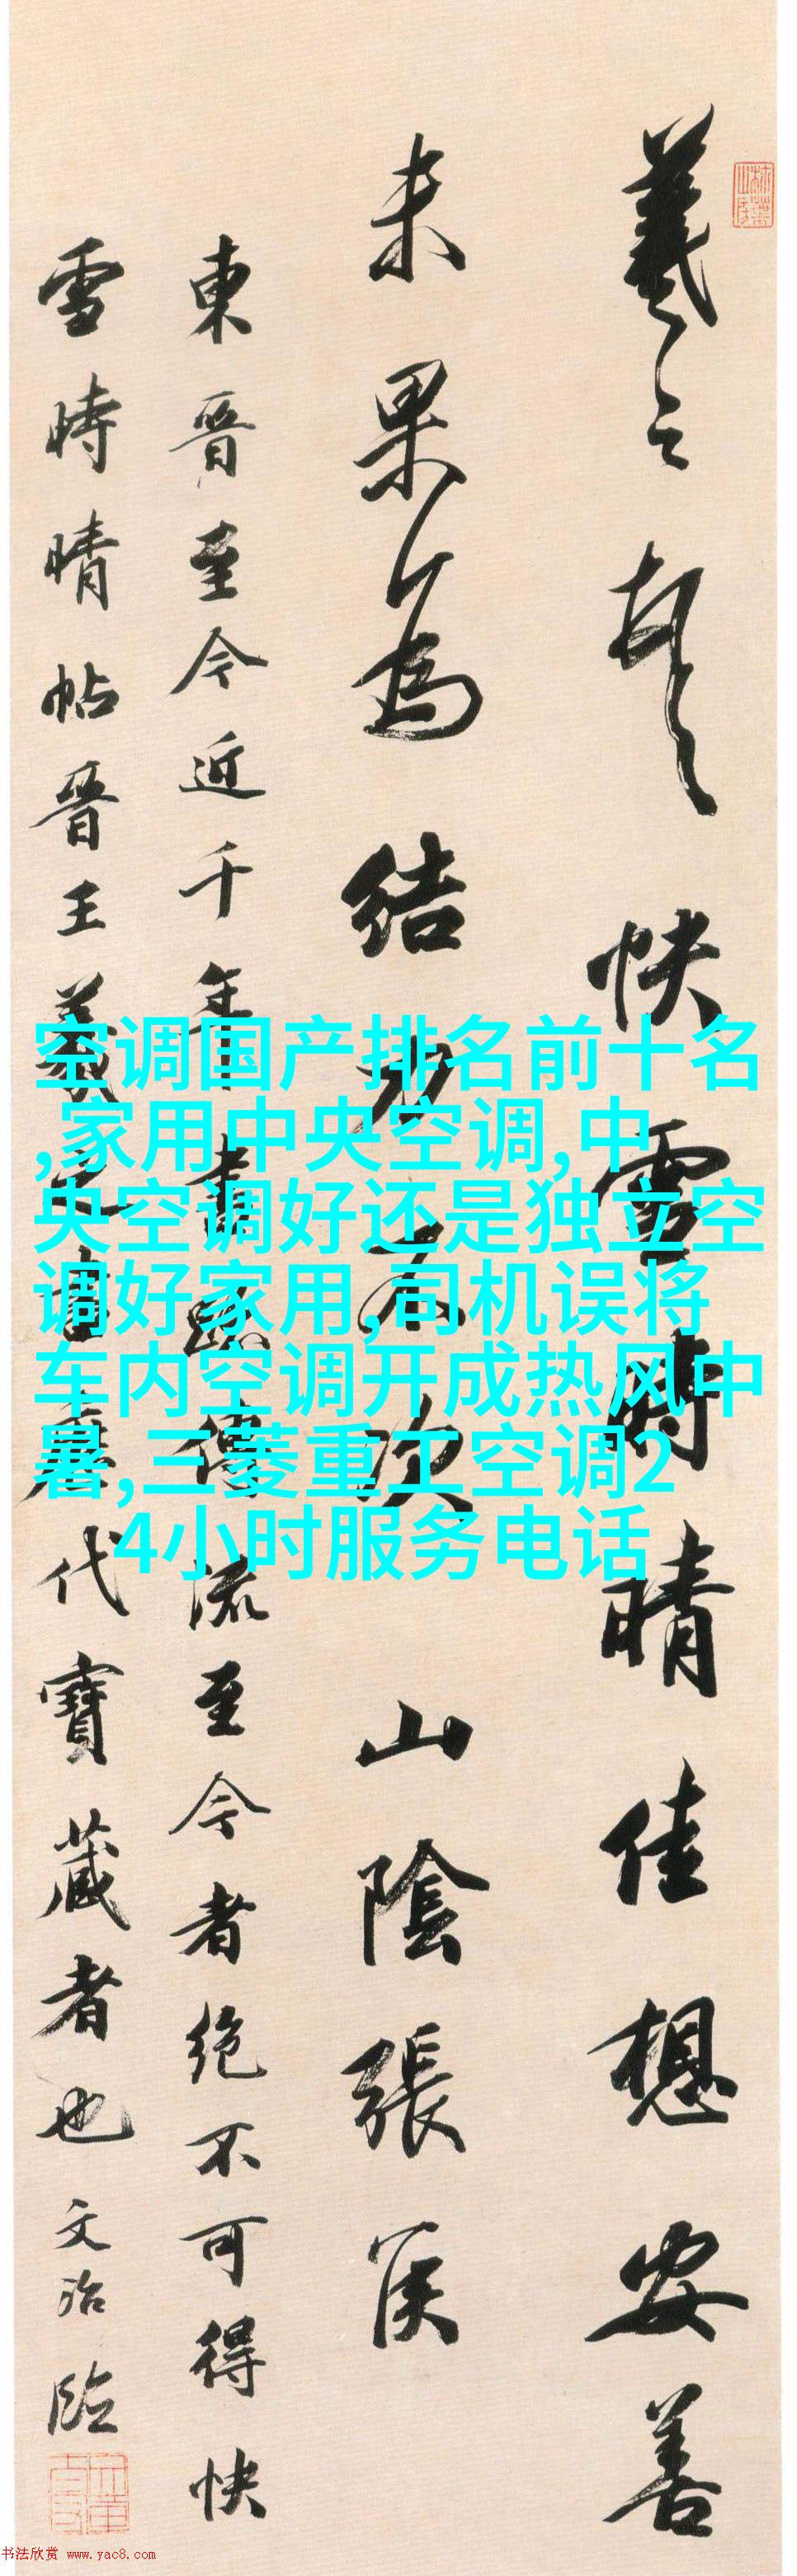 羲之頓首快雪時晴佳想安善
未果為結力不次 山陰張侯
東晉至今近千年書跡傳流至今者絕不可得快
雪時晴帖晉王羲之書歷代寶藏者也文治臨
空调国产排名前十名
,家用中央空调,中
央空调好还是独立空
调好家用,司机误将
车内空调开成热风中
暑,三菱重工空调2
4小时服务电话
书法欣赏 www.yac8.com